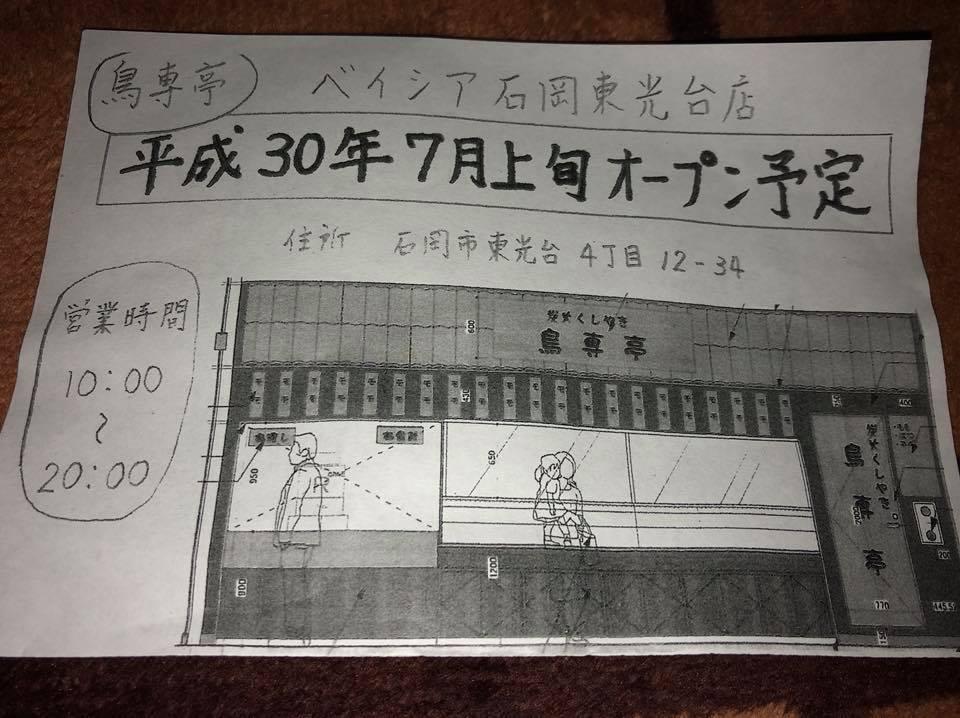 鳥専亭 ベイシア石岡東光台店
平成30年7月上旬オープン予定
住所 石岡市東光台 4丁目 12-34
営業時間
10:00
~
20:00
炭火くしやき
鳥専亭
600
450
400
お渡し
お会計
950
650
炭火くしやき
鳥専亭
1100
1200
200
770
445.5
150